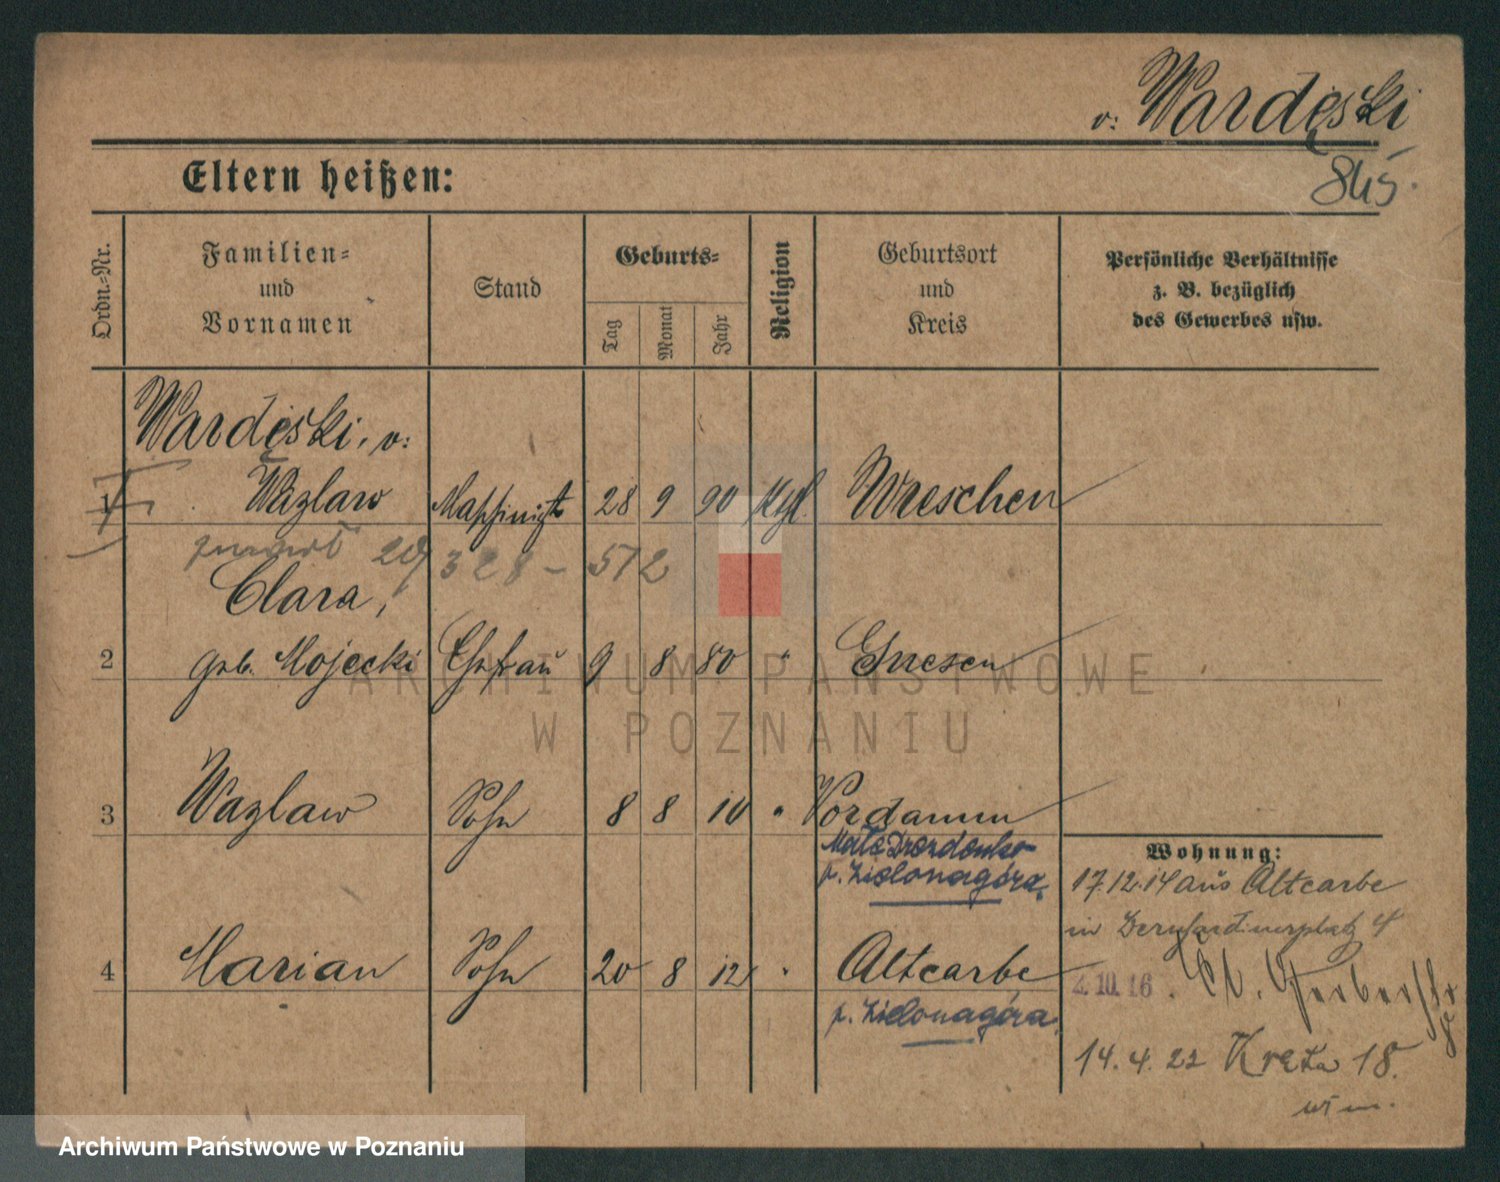 v: Wardęski
845.
Eltern heißen:
Ordn.-Nr.
Familien-
und
Vornamen
Stand
Geburts-
Tag
Monat
Jahr
Religion
Geburtsort
und
Kreis
Persönliche Verhältnisse
z. B. bezüglich
des Gewerbes usw.
Wardęski, v:
1 Wazlaw Maschinist 28 9 90 kgl. Wreschen
20/328-572
Clara,
2 geb. Mojecki Ehefrau 9 8 80 " Gnesen
3 Wazlaw Sohn 8 8 10 " Vordamm
Małe Drezdenko
p. Zielonagóra,
4 Marian Sohn 20 8 12 " Altcarbe
p. Zielonagóra
Wohnung:
17.12.14 aus Altcarbe
in Bernardinerplatz 4
4.10.16. Gr. Gerberstr
8
14.4.22 Kreta 18.
ARCHIWUM PAŃSTWOWE
W POZNANIU
Archiwum Państwowe w Poznaniu